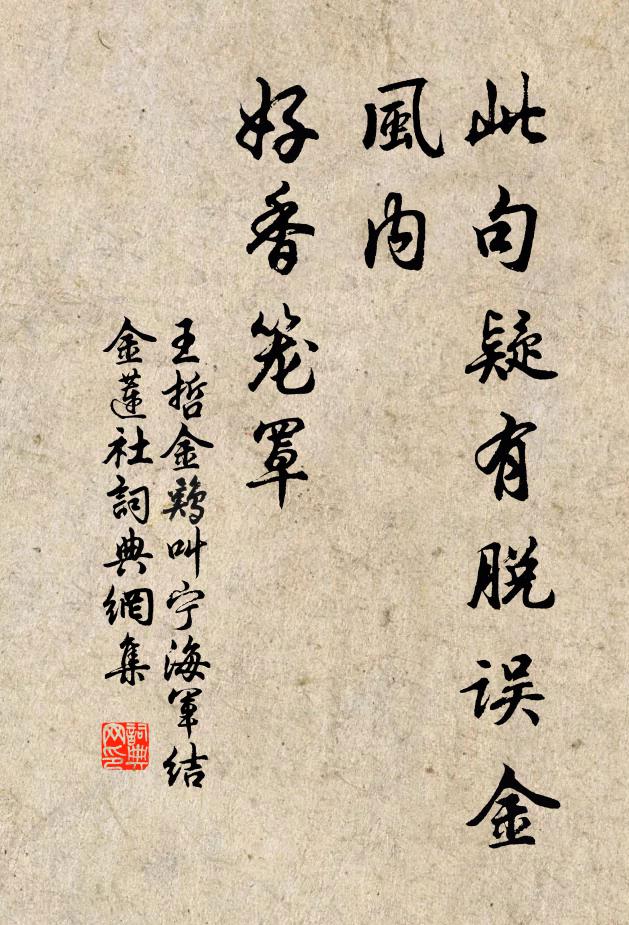 此句疑有脱误金
風内
好香笼罩
王哲金鷄叫宁海軍结
金蓮社詞典網集
詞典
网印